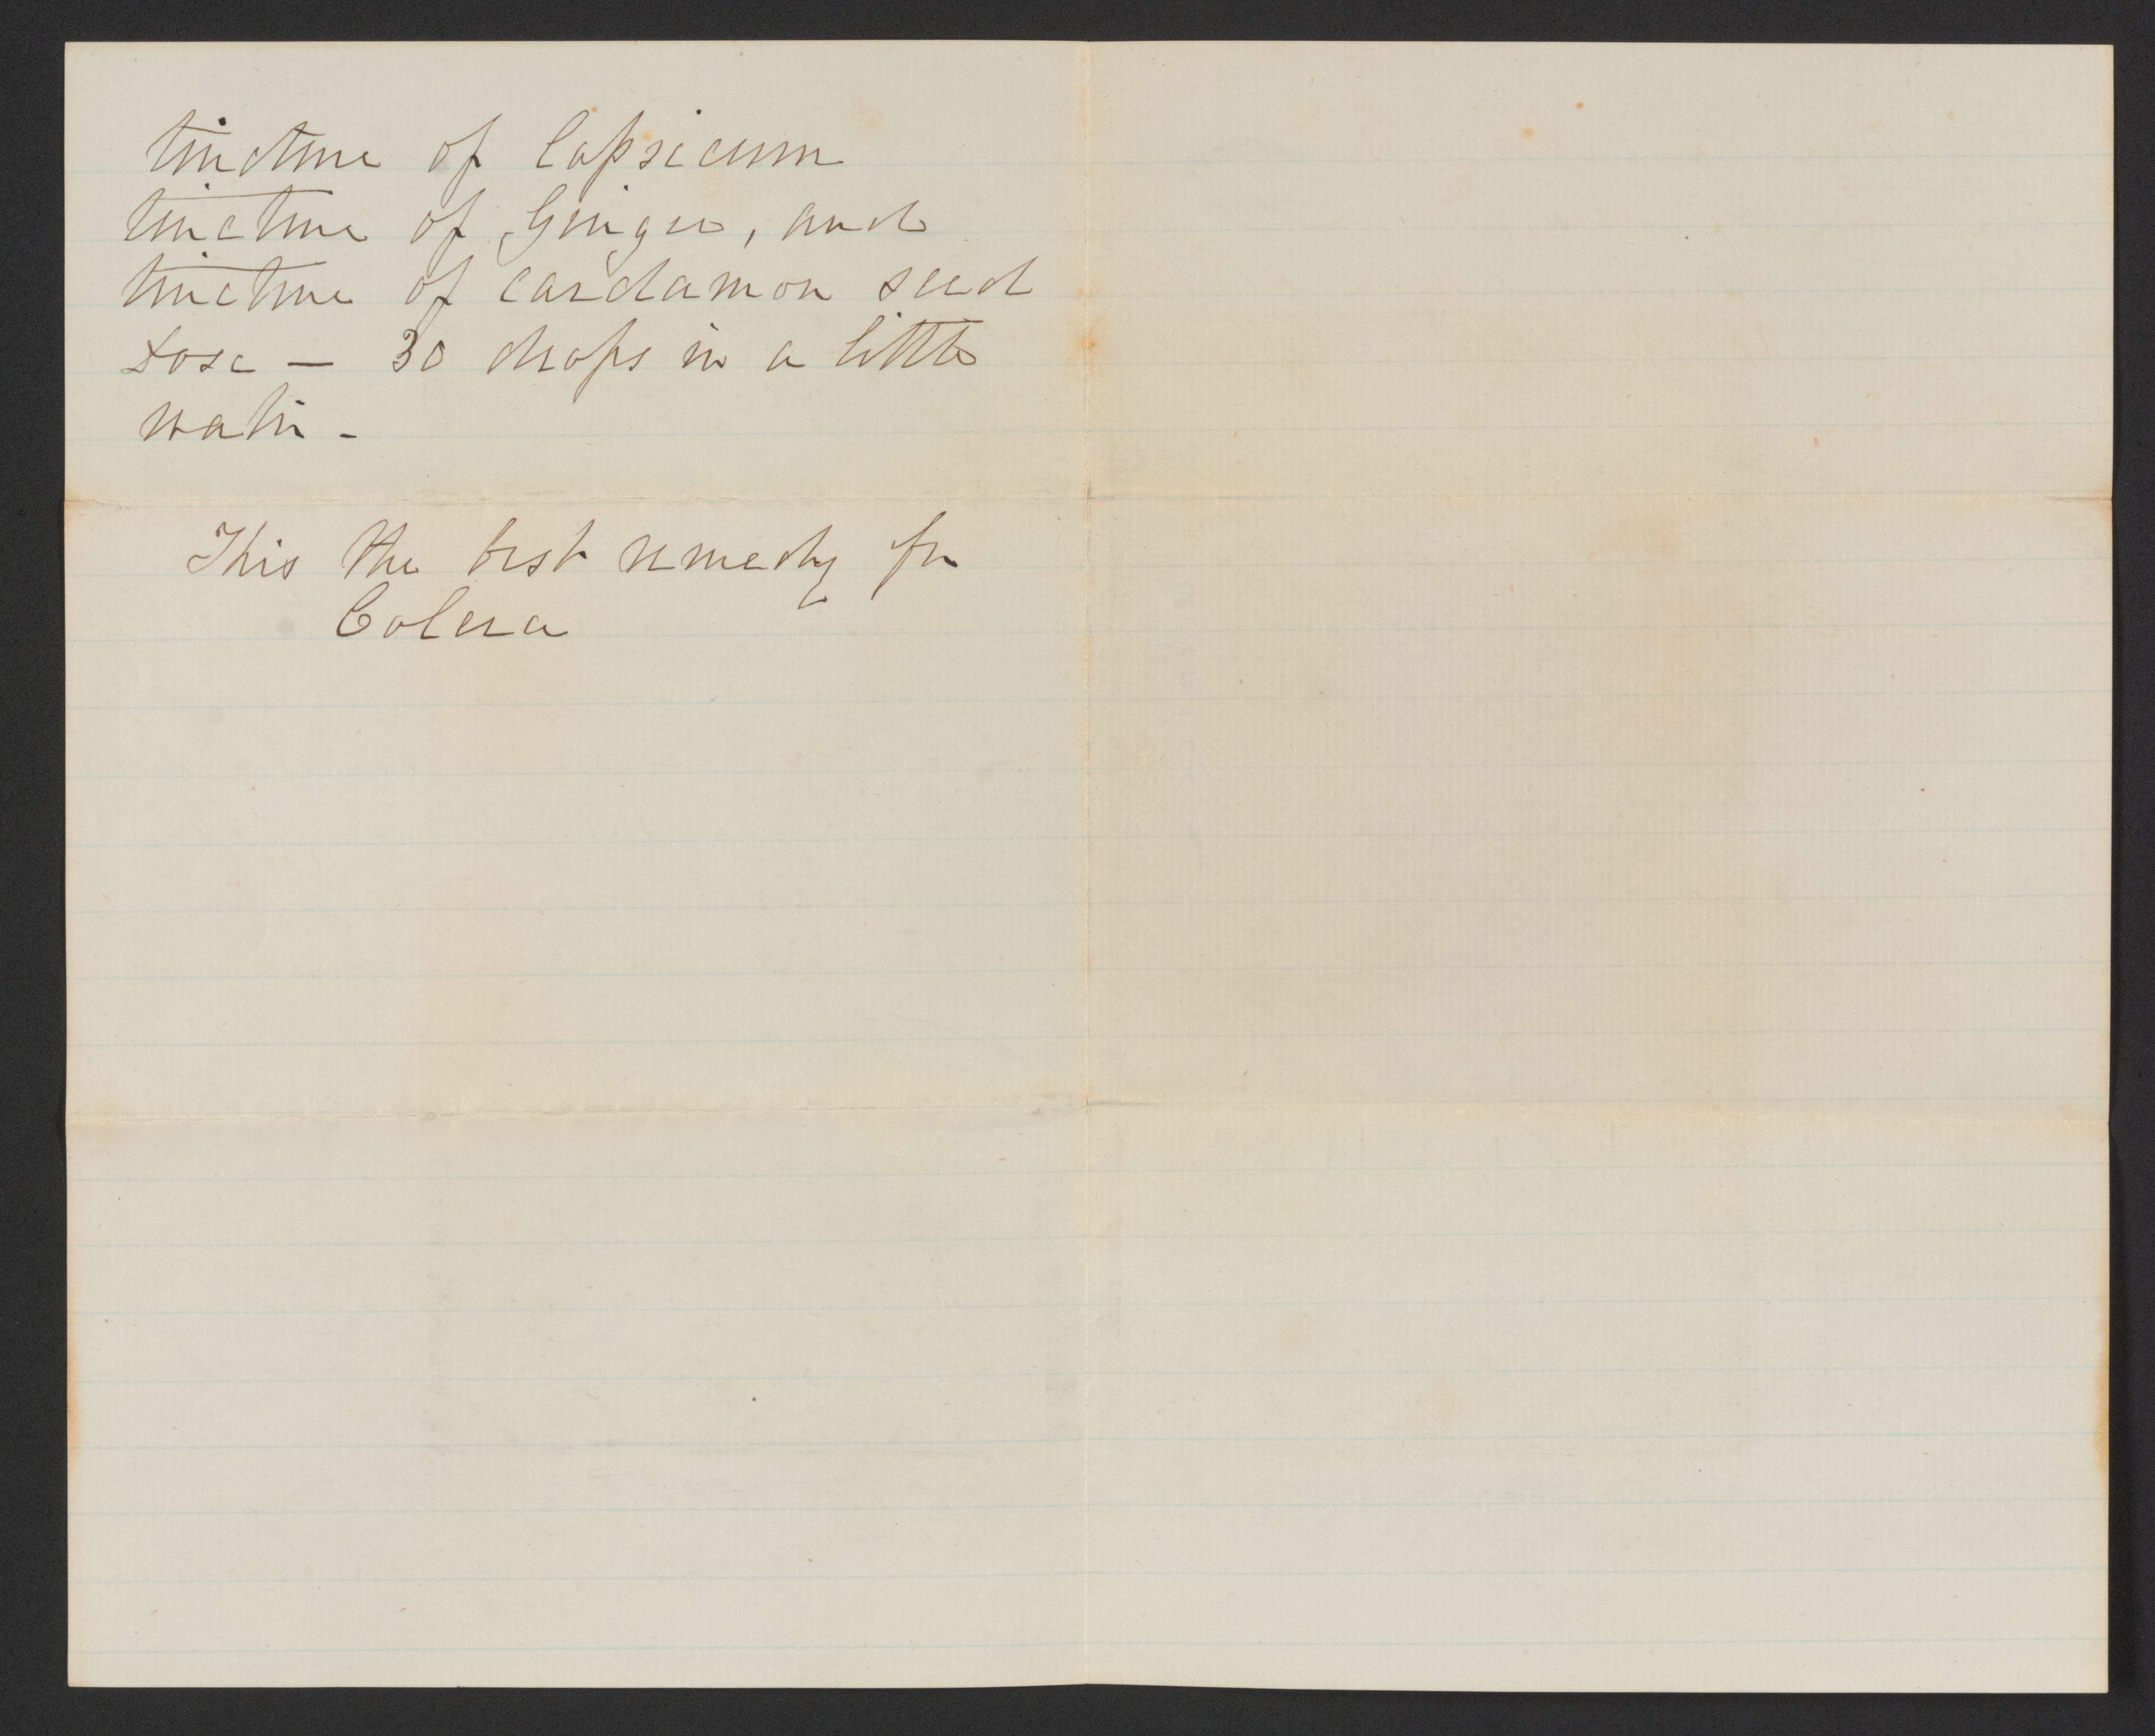 tincture of Capsicum
tincture of Ginger, and
tincture of cardamon seed
Dose — 30 drops in a little
water -
This the best remedy for
Colera